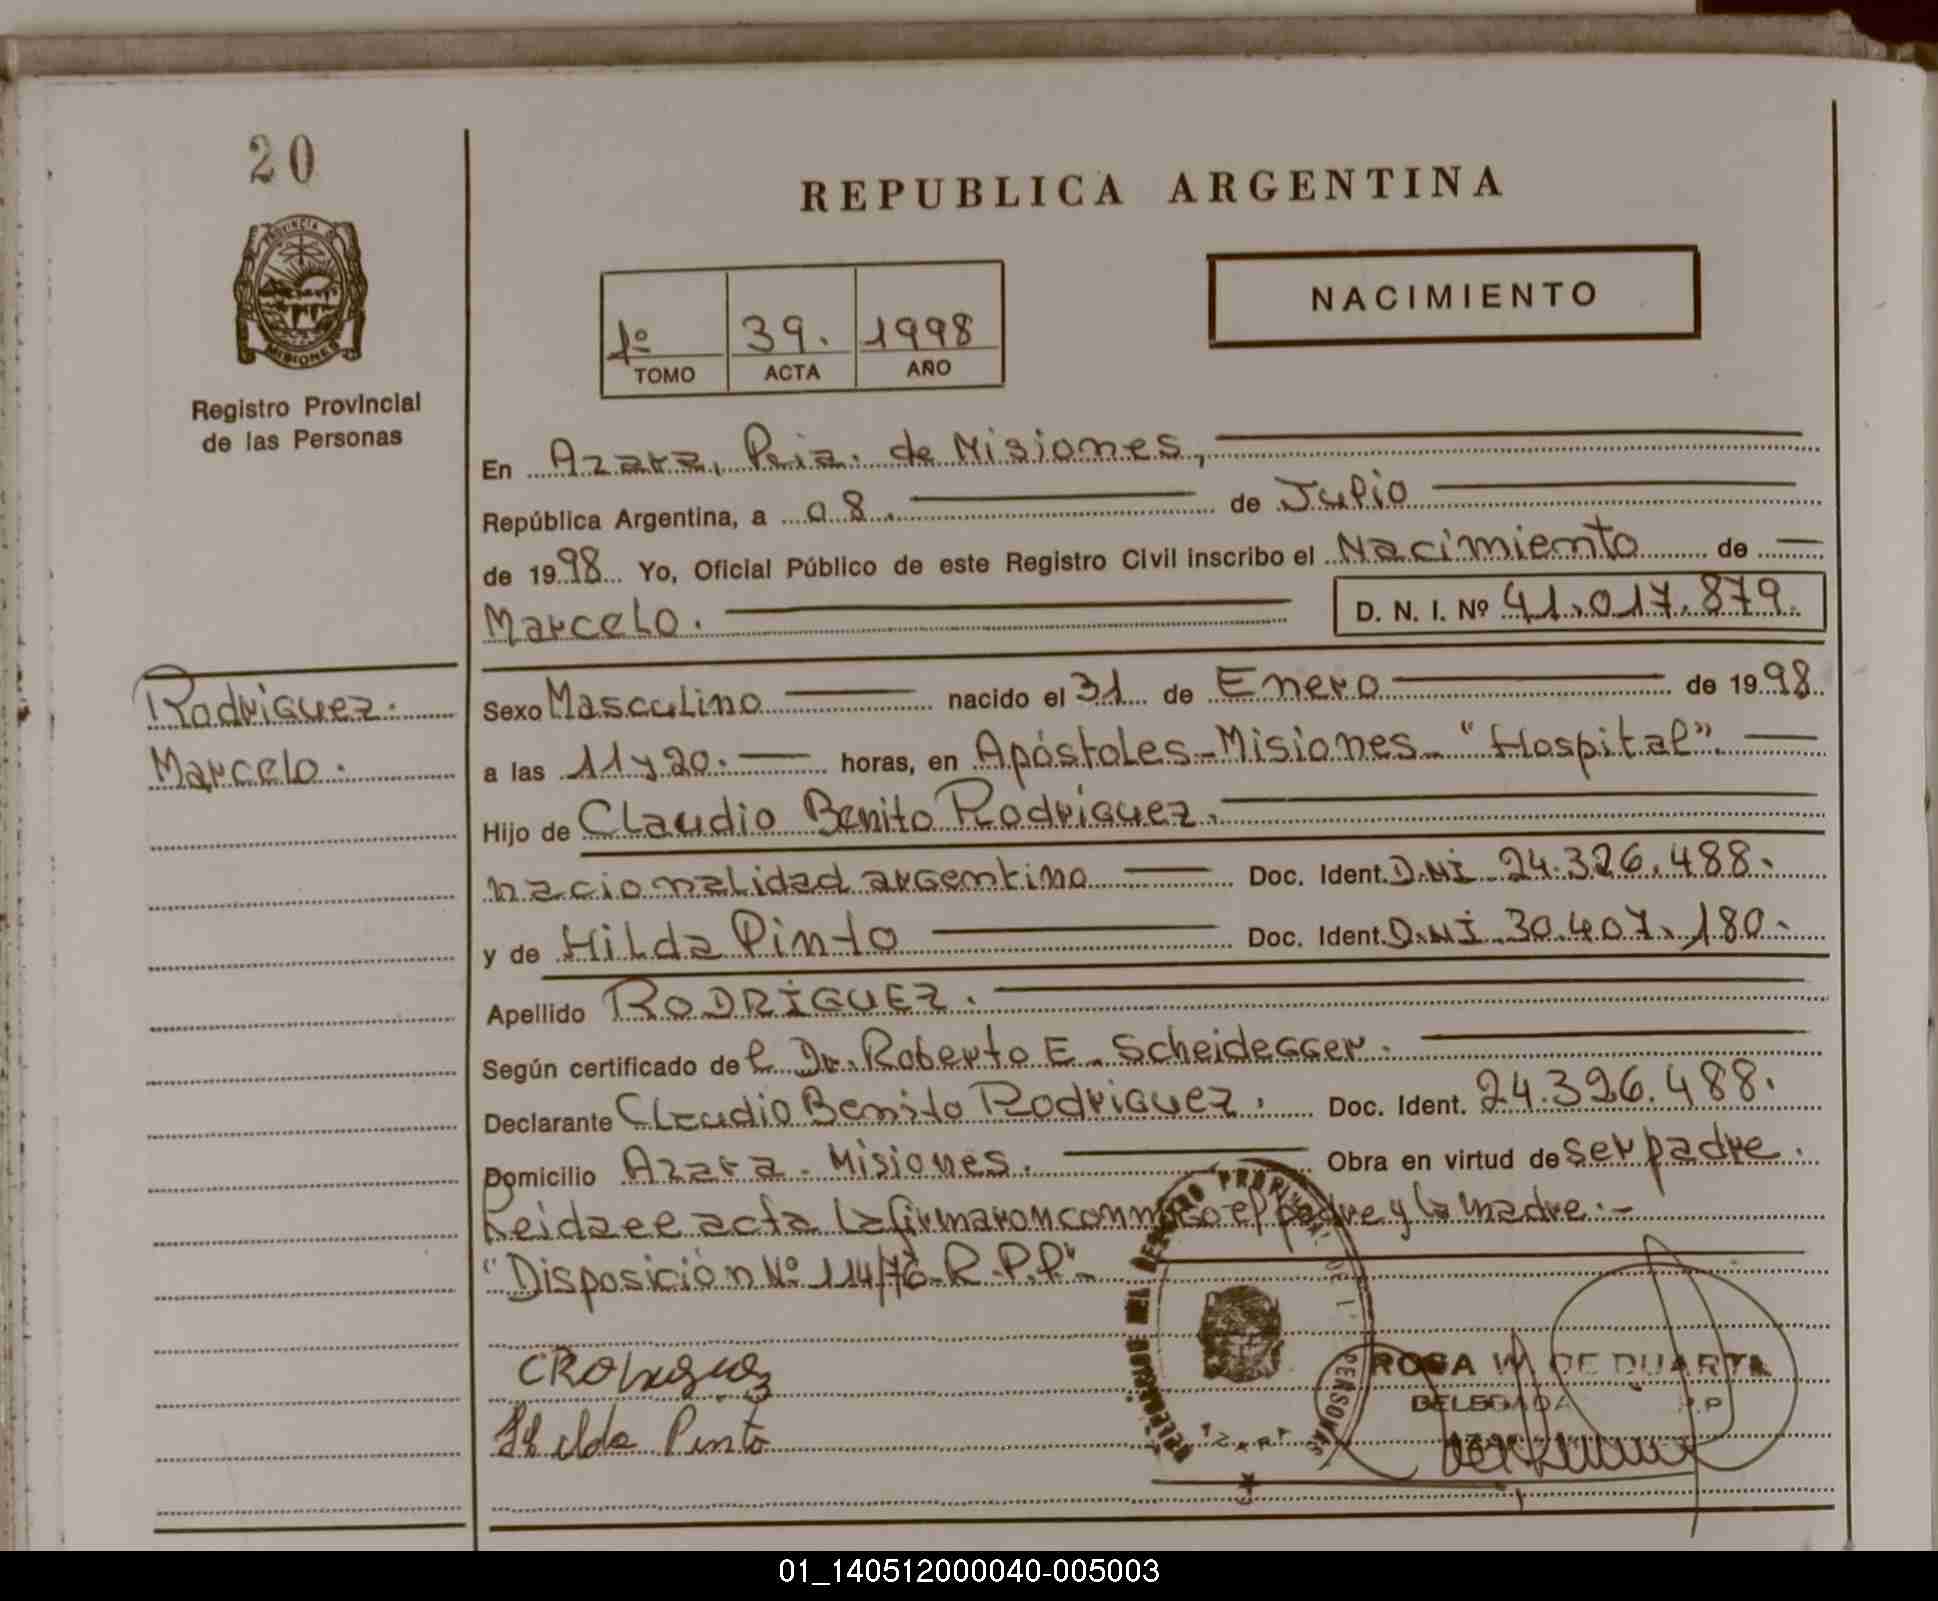 20
PROVINCIA DE
MISIONES
Registro Provincial
de las Personas
REPUBLICA ARGENTINA
NACIMIENTO
1º 39. 1998
TOMO ACTA AÑO
En Azara, Pcia. de Misiones,
República Argentina, a 08. de Julio
de 1998 Yo, Oficial Público de este Registro Civil inscribo el Nacimiento de
Marcelo. D. N. I. Nº 41.017.879.
Rodriguez.
Marcelo.
Sexo Masculino nacido el 31 de Enero de 1998
a las 11 y 20. horas, en Apóstoles-Misiones-"Hospital".
Hijo de Claudio Benito Rodriguez.
nacionalidad argentino Doc. Ident. D.N.I. 24.326.488.
y de Hilda Pinto Doc. Ident. D.N.I. 30.407.180.
Apellido RODRIGUEZ.
Según certificado del Dr. Roberto E. Scheidegger.
Declarante Claudio Benito Rodriguez. Doc. Ident. 24.326.488.
Domicilio Azara-Misiones. Obra en virtud de ser padre.
Leida el acta la firmaron conmigo el padre y la madre.-
"Disposición Nº 114/76-R.P.P."
Hilda Pinto
REGISTRO PROVINCIAL DE L PERSONAS
AZARA
ROSA W. DE DUARTE
DELEGADA
01_140512000040-005003